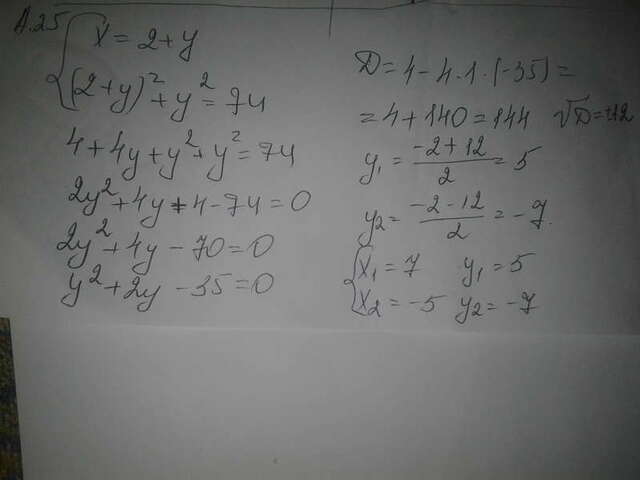 A.25
{ x = 2 + y
{ (2+y)² + y² = 74
4 + 4y + y² + y² = 74
2y² + 4y + 4 - 74 = 0
2y² + 4y - 70 = 0
y² + 2y - 35 = 0
D = 4 - 4·1·(-35) =
= 4 + 140 = 144 √D = ±12
y₁ = (-2+12)/2 = 5
y₂ = (-2-12)/2 = -7.
{ x₁ = 7 y₁ = 5
{ x₂ = -5 y₂ = -7